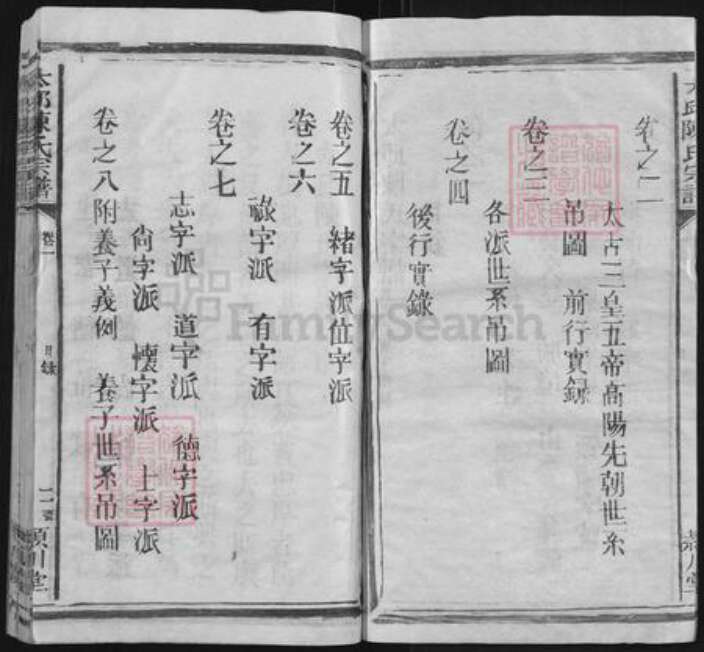 卷之二
太古三皇五帝高陽先朝世系
吊圖 前行實録
卷之三
各派世系吊圖
卷之四
後行實錄
卷之五 緒字派位字派
卷之六
祿字派 有字派
卷之七
志字派 道字派 德字派
尙字派 懷字派 士字派
卷之八附養子義例 養子世系吊圖
太邱陳氏宗譜
卷一
目錄
潁川堂
太邱陳氏宗譜
FamilySearch